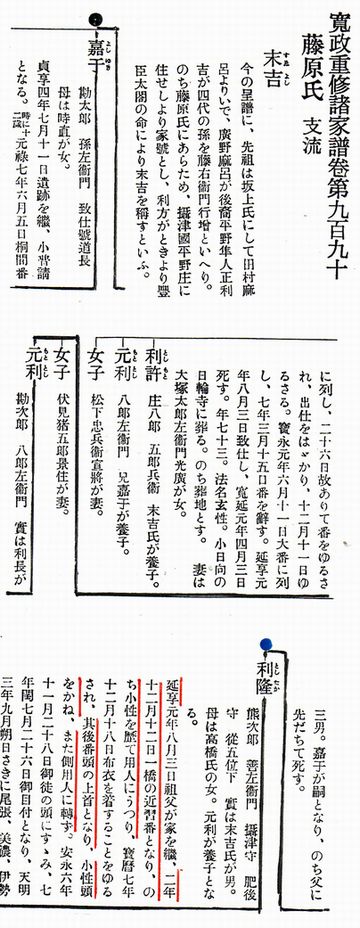 寬政重修諸家譜卷第九百九十
藤原氏 支流
末吉
すゑよし
今の呈譜に、先祖は坂上氏にして田村麻
呂よりいで、廣野麻呂が後裔平野隼人正利
吉が四代の孫を藤右衞門行增といへり。
のち藤原氏にあらため、攝津國平野庄に
住せしより家號とし、利方がときより豐
臣太閤の命により末吉を稱すといふ。
嘉千
よしゆき
勘太郎 孫左衞門 致仕號道長
母は時直が女。
貞享四年七月十一日遺跡を繼、小普請
となる。時に十二歲 元祿七年六月五日桐間番
に列し、二十六日故ありて番をゆるさ
れ、出仕をはゞかり、十二月十一日ゆ
るさる。寶永元年六月十一日大番に列
し、七年三月十五日番を辭す。延享元
年八月三日致仕し、寬延元年四月三日
死す。年七十三。法名玄性。小日向の
日輪寺に葬る。のち葬地とす。 妻は
大塚太郎左衞門光廣が女。
利許
としもと
庄八郎 五郎兵衞 末吉氏が養子。
元利
もととし
八郎左衞門 兄嘉千が養子。
女子
松下忠兵衞宣將が妻。
女子
伏見猪五郎景住が妻。
元利
もととし
勘次郎 八郎左衞門 實は利長が
三男。嘉千が嗣となり、のち父に
先だちて死す。
利隆
としたか
熊次郎 善左衞門 攝津守 肥後
守 從五位下 實は末吉氏が男。
母は高橋氏の女。元利が養子とな
る。
延享元年八月三日祖父が家を繼、二年
十二月十二日一橋の近習番となり、の
ち小性を歷て用人にうつり、寶曆七年
十二月十八日布衣を着することをゆる
され、其後番頭の上首となり、小性頭
をかね、また側用人に轉ず。安永六年
十一月二十八日御徒の頭にすゝみ、七
年閏七月二十六日御目付となり、天明
三年九月朔日さきに尾張、美濃、伊勢